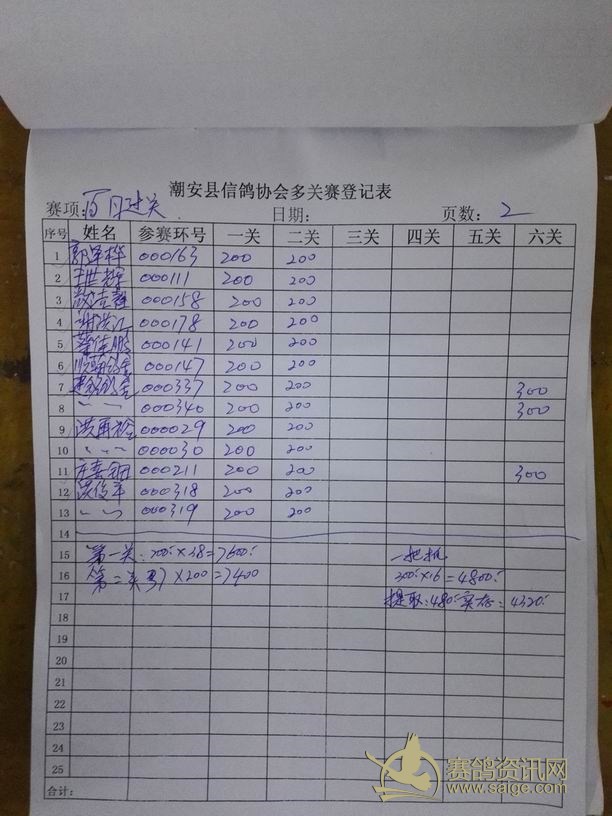 潮安县信鸽协会多关赛登记表
赛项: 日期: 页数: 2
序号 姓名 参赛环号 一关 二关 三关 四关 五关 六关
1 000163 200 200
2 000111 200 200
3 000158 200 200
4 000178 200 200
5 000141 200 200
6 000147 200 200
7 000337 200 200 300
8 〃 〃 000340 200 200 300
9 000029 200 200
10 000030 200 200
11 000211 200 200 300
12 000318 200 200
13 〃 〃 000319 200 200
14
15 第一关: 200 × 38 = 7600 一把抓
16 第二关 37 × 200 = 7400 300 × 16 = 4800
17 提取: 480 实存: 4320
18
19
20
21
22
23
24
25
合计:
赛鸽资讯网
www.saige.com